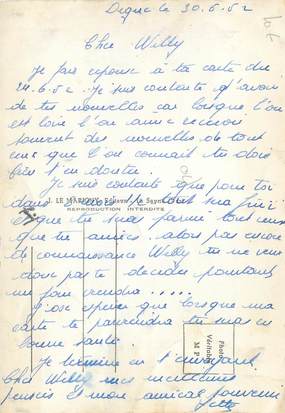 Digne le 30.6.52
Cher Willy
Je fais reponse à ta carte du
24.6.52. Je suis contente d'avoir
de tes nouvelles car lorsque l'on
est loin l'on aime recevoir
souvent des nouvelles de tout
ceux que l'on connait tu dois
bien t'en douter.
Je suis contente que pour toi
dans mois tout sera fini
J. LE MAR
REPRODUCTION INTERDITE
que tu sera parmi tout ceux
que tu aimes, alors pas encore
de connaissance Willy tu ne veux
donc pas te decider pourtant
un jour viendra.....
J'ose espérer que lorsque ma
carte te parviendra tu sera en
bonne santé.
Photo
Véritable
Je termine en t'envoyant
Cher Willy mes meilleures
pensées et mon amical souvenir